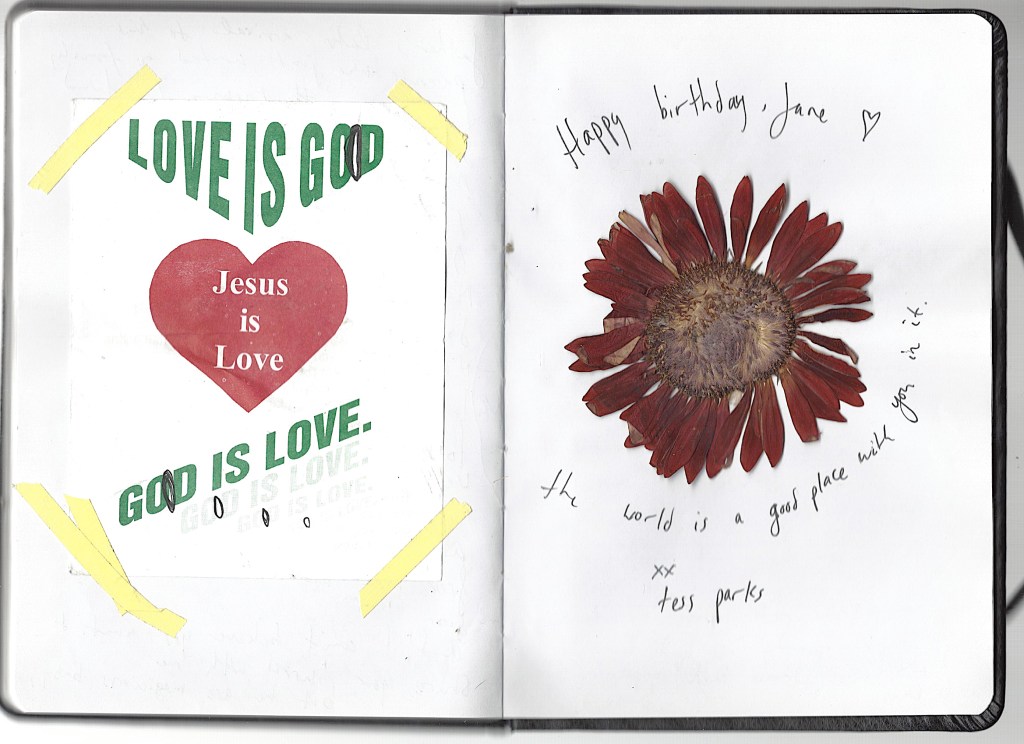 LOVE IS GOD
Jesus
is
Love
GOD IS LOVE.
GOD IS LOVE.
GOD IS LOVE.
Happy birthday, Jane ♡
the world is a good place with you in it.
xx
tess parks